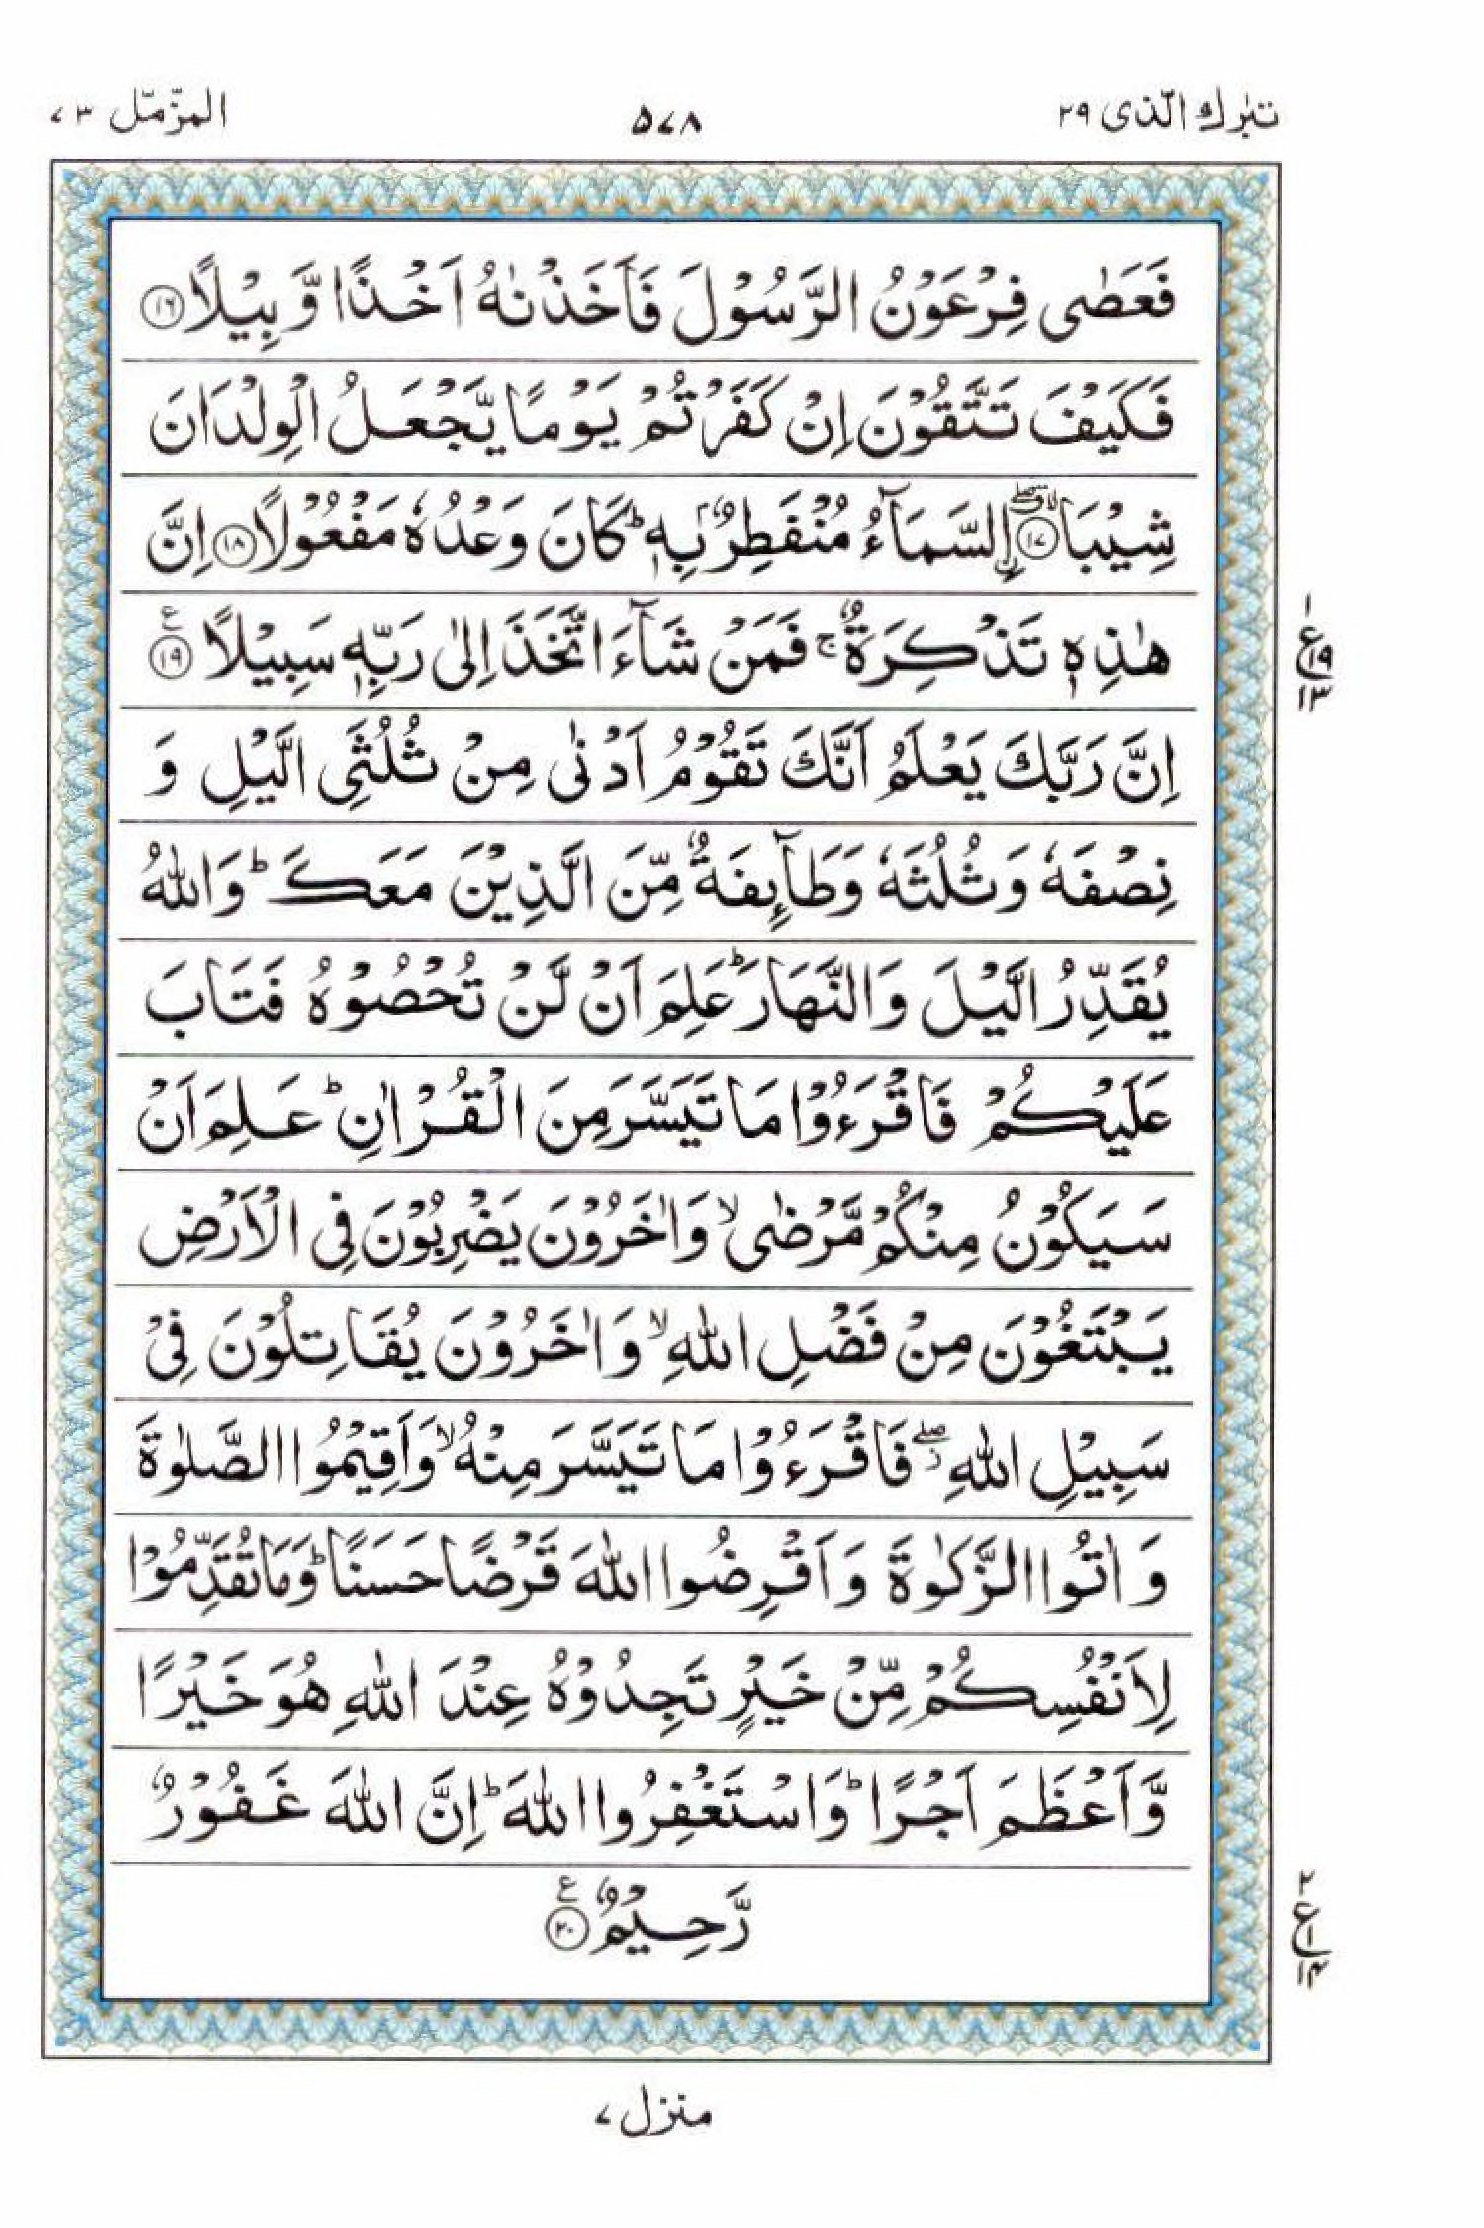 تبٰرك الّذی ۲۹
۵۷۸
المزّمّل ۷۳
فَعَصٰى فِرْعَوْنُ الرَّسُوْلَ فَاَخَذْنٰهُ اَخْذًا وَّبِيْلًا ⑯
فَكَيْفَ تَتَّقُوْنَ اِنْ كَفَرْتُمْ يَوْمًا يَّجْعَلُ الْوِلْدَانَ
شِيْبَا ⑰ۖ اۨلسَّمَآءُ مُنْفَطِرٌۢ بِهٖ ؕ كَانَ وَعْدُهٗ مَفْعُوْلًا ⑱ اِنَّ
هٰذِهٖ تَذْكِرَةٌ ۚ فَمَنْ شَآءَ اتَّخَذَ اِلٰى رَبِّهٖ سَبِيْلًا ⑲ع
اِنَّ رَبَّكَ يَعْلَمُ اَنَّكَ تَقُوْمُ اَدْنٰى مِنْ ثُلُثَيِ الَّيْلِ وَ
نِصْفَهٗ وَثُلُثَهٗ وَطَآئِفَةٌ مِّنَ الَّذِيْنَ مَعَكَ ؕ وَاللّٰهُ
يُقَدِّرُ الَّيْلَ وَالنَّهَارَ ؕ عَلِمَ اَنْ لَّنْ تُحْصُوْهُ فَتَابَ
عَلَيْكُمْ فَاقْرَءُوْا مَا تَيَسَّرَ مِنَ الْقُرْاٰنِ ؕ عَلِمَ اَنْ
سَيَكُوْنُ مِنْكُمْ مَّرْضٰى ۙ وَاٰخَرُوْنَ يَضْرِبُوْنَ فِى الْاَرْضِ
يَبْتَغُوْنَ مِنْ فَضْلِ اللّٰهِ ۙ وَاٰخَرُوْنَ يُقَاتِلُوْنَ فِىْ
سَبِيْلِ اللّٰهِ ۖ فَاقْرَءُوْا مَا تَيَسَّرَ مِنْهُ ۙ وَاَقِيْمُوا الصَّلٰوةَ
وَاٰتُوا الزَّكٰوةَ وَاَقْرِضُوا اللّٰهَ قَرْضًا حَسَنًا ؕ وَمَا تُقَدِّمُوْا
لِاَنْفُسِكُمْ مِّنْ خَيْرٍ تَجِدُوْهُ عِنْدَ اللّٰهِ هُوَ خَيْرًا
وَّاَعْظَمَ اَجْرًا ؕ وَاسْتَغْفِرُوا اللّٰهَ ؕ اِنَّ اللّٰهَ غَفُوْرٌ
رَّحِيْمٌ ⑳ع
۱
ع ۱۹
۱۳
۲
ع ۱
۱۴
منزل ۷